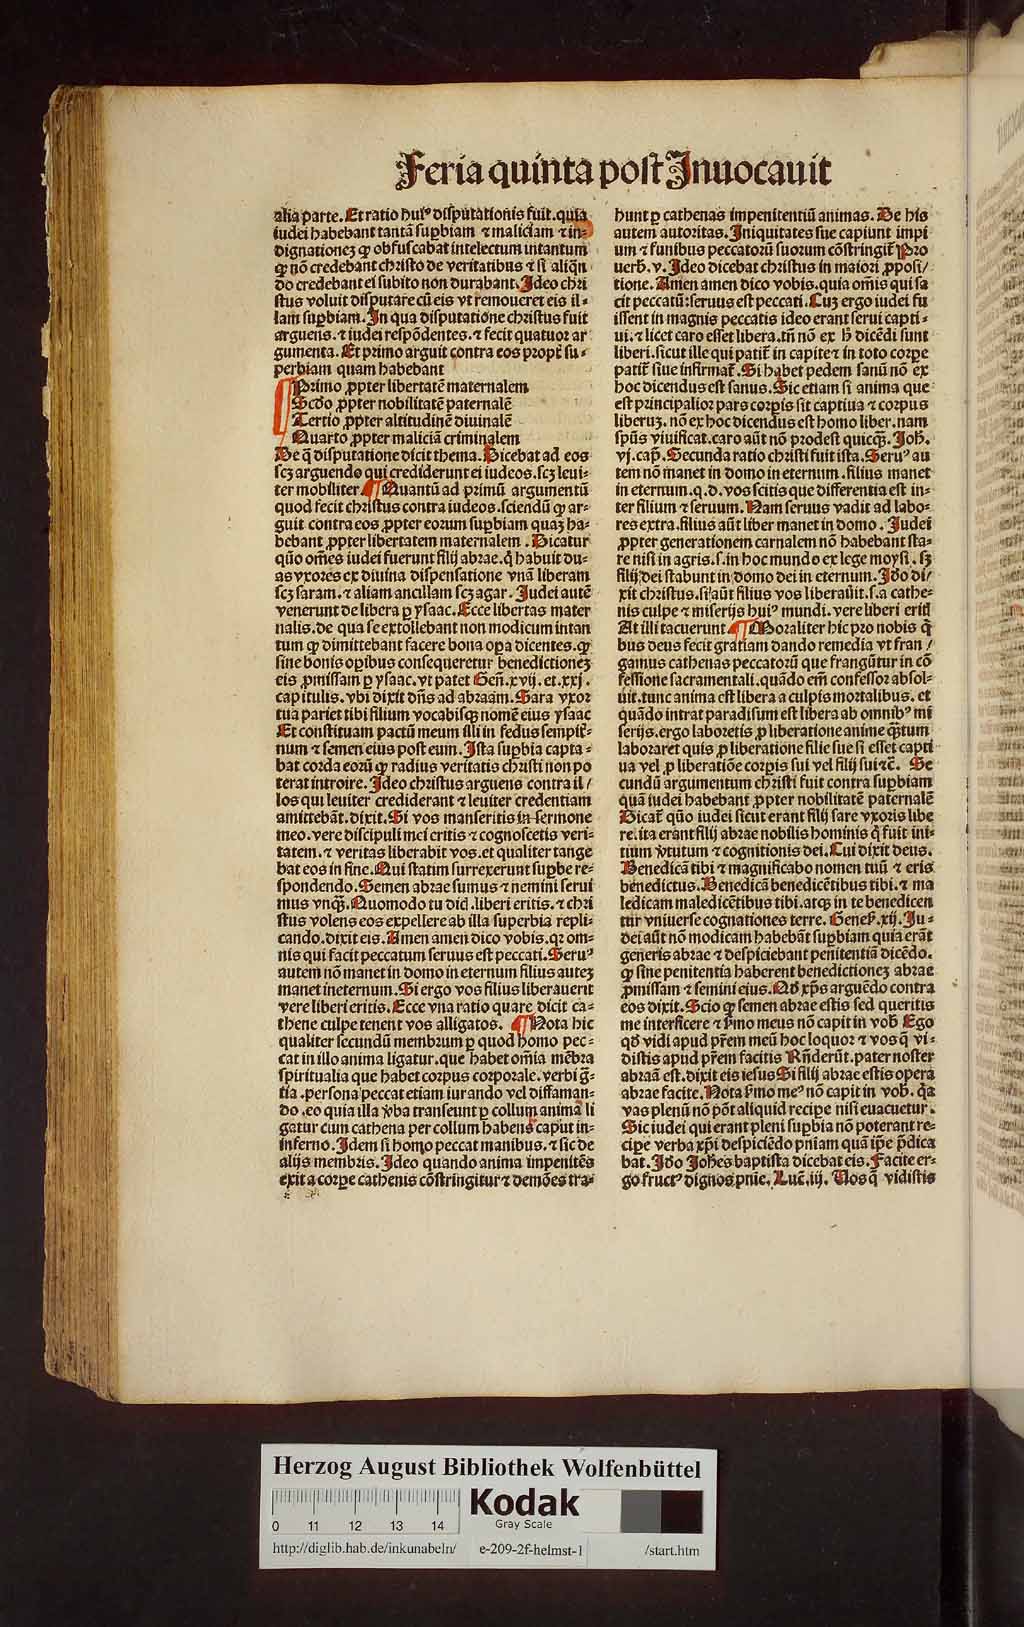 Feria quinta post Inuocauit
alia parte. Et ratio huiꝰ disputationis fuit. quia
iudei habebant tantā suꝑbiam ⁊ maliciam ⁊ in⸗
dignationeꝫ ꝙ obfuscabat intelectum intantum
ꝙ nō credebant christo de veritatibus ⁊ si aliqñ
do credebant ei subito non durabant. Ideo chri
stus voluit disputare cū eis vt remoueret eis il⸗
lam suꝑbiam. In qua disputatione christus fuit
arguens. ⁊ iudei respōdentes. ⁊ fecit quatuor ar
gumenta. Et primo arguit contra eos propt̄ su⸗
perbiam quam habebant
Primo ꝓpter libertatē maternalem
Scd̄o ꝓpter nobilitatē paternalē
Tertio ꝓpter altitudinē diuinalē
Quarto ꝓpter maliciā criminalem
De q̄ disputatione dicit thema. Dicebat ad eos
scꝫ arguendo qui crediderunt ei iudeos. scꝫ leui⸗
ter mobiliter ¶ Quantū ad primū argumentū
quod fecit christus contra iudeos. sciendū ꝙ ar⸗
guit contra eos ꝓpter eorum suꝑbiam quaꝫ ha⸗
bebant ꝓpter libertatem maternalem. Dicatur
quō om̄es iudei fuerunt filij abrae. q̇ habuit du⸗
as vxores ex diuina dispensatione vnā liberam
scꝫ saram. ⁊ aliam ancillam scꝫ agar. Iudei autē
venerunt de libera ꝑ ysaac. Ecce libertas mater
nalis. de qua se extollebant non modicum intan
tum ꝙ dimittebant facere bona oꝑa dicentes. ꝙ
sine bonis oꝑibus consequeretur benedictioneꝫ
eis ꝓmissam ꝑ ysaac. vt patet Geñ. xvij. et. xxj.
capitulis. vbi dixit dn̄s ad abraam. Sara vxor
tua pariet tibi filium vocabisqꝫ nomē eius ysaac
Et constituam pactū meum illi in fedus sempit̄⸗
num ⁊ semen eius post eum. Ista suꝑbia capta⸗
bat corda eorū ꝙ radius veritatis christi non po
terat introire. Ideo christus arguens contra il/
los qui leuiter crediderant ⁊ leuiter credentiam
amittebāt. dixit. Si vos manseritis in sermone
meo. vere discipuli mei critis ⁊ cognoscetis veri⸗
tatem. ⁊ veritas liberabit vos. et qualiter tange
bat eos in fine. Qui statim surrexerunt suꝑbe re⸗
spondendo. Semen abrae sumus ⁊ nemini serui
mus vnqꝫ. Quomodo tu did. liberi eritis. ⁊ chri
stus volens eos expellere ab illa superbia repli⸗
cando. dixit eis. Amen amen dico vobis. qꝛ om⸗
nis qui facit peccatum seruus est peccati. Seruꝰ
autem nō manet in domo in eternum filius auteꝫ
manet ineternum. Si ergo vos filius liberauerit
vere liberi eritis. Ecce vna ratio quare dicit ca⸗
thene culpe tenent vos alligatos. ¶ Nota hic
qualiter secundū membrum ꝑ quod homo pec⸗
cat in illo anima ligatur. que habet om̄ia mēbra
spiritualia que habet corpus corporale. verbi g̃⸗
tia. persona peccat etiam iurando vel diffaman⸗
do. eo quia illa v̓ba transeunt ꝑ collum anima li
gatur cum cathena per collum habens caput in⸗
inferno. Idem si homo peccat manibus. ⁊ sic de
alijs membris. Ideo quando anima impenitēs
exit a corꝑe cathenis cōstringitur ⁊ demōes tra⸗
hunt ꝑ cathenas impenitentiū animas. De his
autem autoritas. Iniquitates sue capiunt impi
um ⁊ funibus peccatorū suorum cōstringit̄ Pro
uerb̄. v. Ideo dicebat christus in maiori ꝓposi/
tione. Amen amen dico vobis. quia om̄is qui fa
cit peccatū: seruus est peccati. Cuꝫ ergo iudei fu
issent in magnis peccatis ideo erant serui capti⸗
ui. ⁊ licet caro esset libera. tn̄ nō ex h̄ dicēdi sunt
liberi. sicut ille qui patit̄ in capite ⁊ in toto corꝑe
patit̄ siue infirmat̄. Si habet pedem sanū nō ex
hoc dicendus est sanus. Sic etiam si anima que
est principalior pars corꝑis sit captiua ⁊ corpus
liberuꝫ. nō ex hoc dicendus est homo liber. nam
spūs viuificat. caro aūt nō prodest quicqꝫ. Joh̄.
vj. cap̄. Secunda ratio christi fuit ista. Seruꝰ au
tem nō manet in domo in eternum. filius manet
in eternum. q. d. vos scitis que differentia est in⸗
ter filium ⁊ seruum. Nam seruus vadit ad labo⸗
res extra. filius aūt liber manet in domo. Iudei
ꝓpter generationem carnalem nō habebant sta⸗
re nisi in agris. s. in hoc mundo ex lege moysi. sꝫ
filij dei stabunt in domo dei in eternum. Id̄o di/
xit christus. si aūt filius vos liberauit. s. a cathe⸗
nis culpe ⁊ miserijs huiꝰ mundi. vere liberi eritꝭ
At illi tacuerunt ¶ Moraliter hic pro nobis q̄
bus deus fecit gratiam dando remedia vt fran/
gamus cathenas peccatorū que frangūtur in cō
fessione sacramentali. quādo em̄ confessor absol⸗
uit. tunc anima est libera a culpis mortalibus. et
quādo intrat paradisum est libera ab omnibꝰ mi
serijs. ergo laboretis ꝓ liberatione anime q̄tum
laboraret quis ꝓ liberatione filie sue si esset capti
ua vel ꝓ liberatiōe corꝑis sui vel filij sui ⁊c̄. Se
cundū argumentum christi fuit contra suꝑbiam
quā iudei habebant ꝓpter nobilitatē paternalē
Dicat̄ quō iudei sicut erant filij sare vxoris libe
re. ita erant filij abrae nobilis hominis q̇ fuit ini⸗
tium v̓tutum ⁊ cognitionis dei. Cui dixit deus.
Benedicā tibi ⁊ magnificabo nomen tuū ⁊ eris
benedictus. Benedicā benedicētibus tibi. ⁊ ma
ledicam maledicētibus tibi. atqꝫ in te benedicen
tur vniuerse cognationes terre. Geneſ̄. xij. Iu⸗
dei aūt nō modicam habebāt suꝑbiam quia erāt
generis abrae ⁊ despiciebant penitentiā dicēdo.
ꝙ sine penitentia haberent benedictioneꝫ abrae
ꝓmissam ⁊ semini eius. Qd̄ xp̄s arguēdo contra
eos dixit. Scio ꝙ semen abrae estis sed queritis
me interficere ⁊ s̓mo meus nō capit in vob̄ Ego
qd̄ vidi apud pr̄em meū hoc loquor ⁊ vos q̄ vi⸗
distis apud pr̄em facitis Rn̄derūt. pater noster
abraā est. dixit eis iesus Si filij abrae estis opera
abrae facite. Nota s̓mo meꝰ nō capit in vob̄. q̄a
vas plenū nō pōt aliquid reciꝑe nisi euacuetur.
Sic iudei qui erant pleni suꝑbia nō poterant re⸗
ciꝑe verba xp̄i despiciēdo pn̄iam quā ip̄e p̄dica
bat. Id̄o Joh̄es baptista dicebat eis. Facite er⸗
go fructꝰ dignos pn̄ie. Luc̄. iij. Uos q̄ vidistis
Herzog August Bibliothek Wolfenbüttel
Kodak
Gray Scale
0 11 12 13 14
http://diglib.hab.de/inkunabeln/ e-209-2f-helmst-1 /start.htm